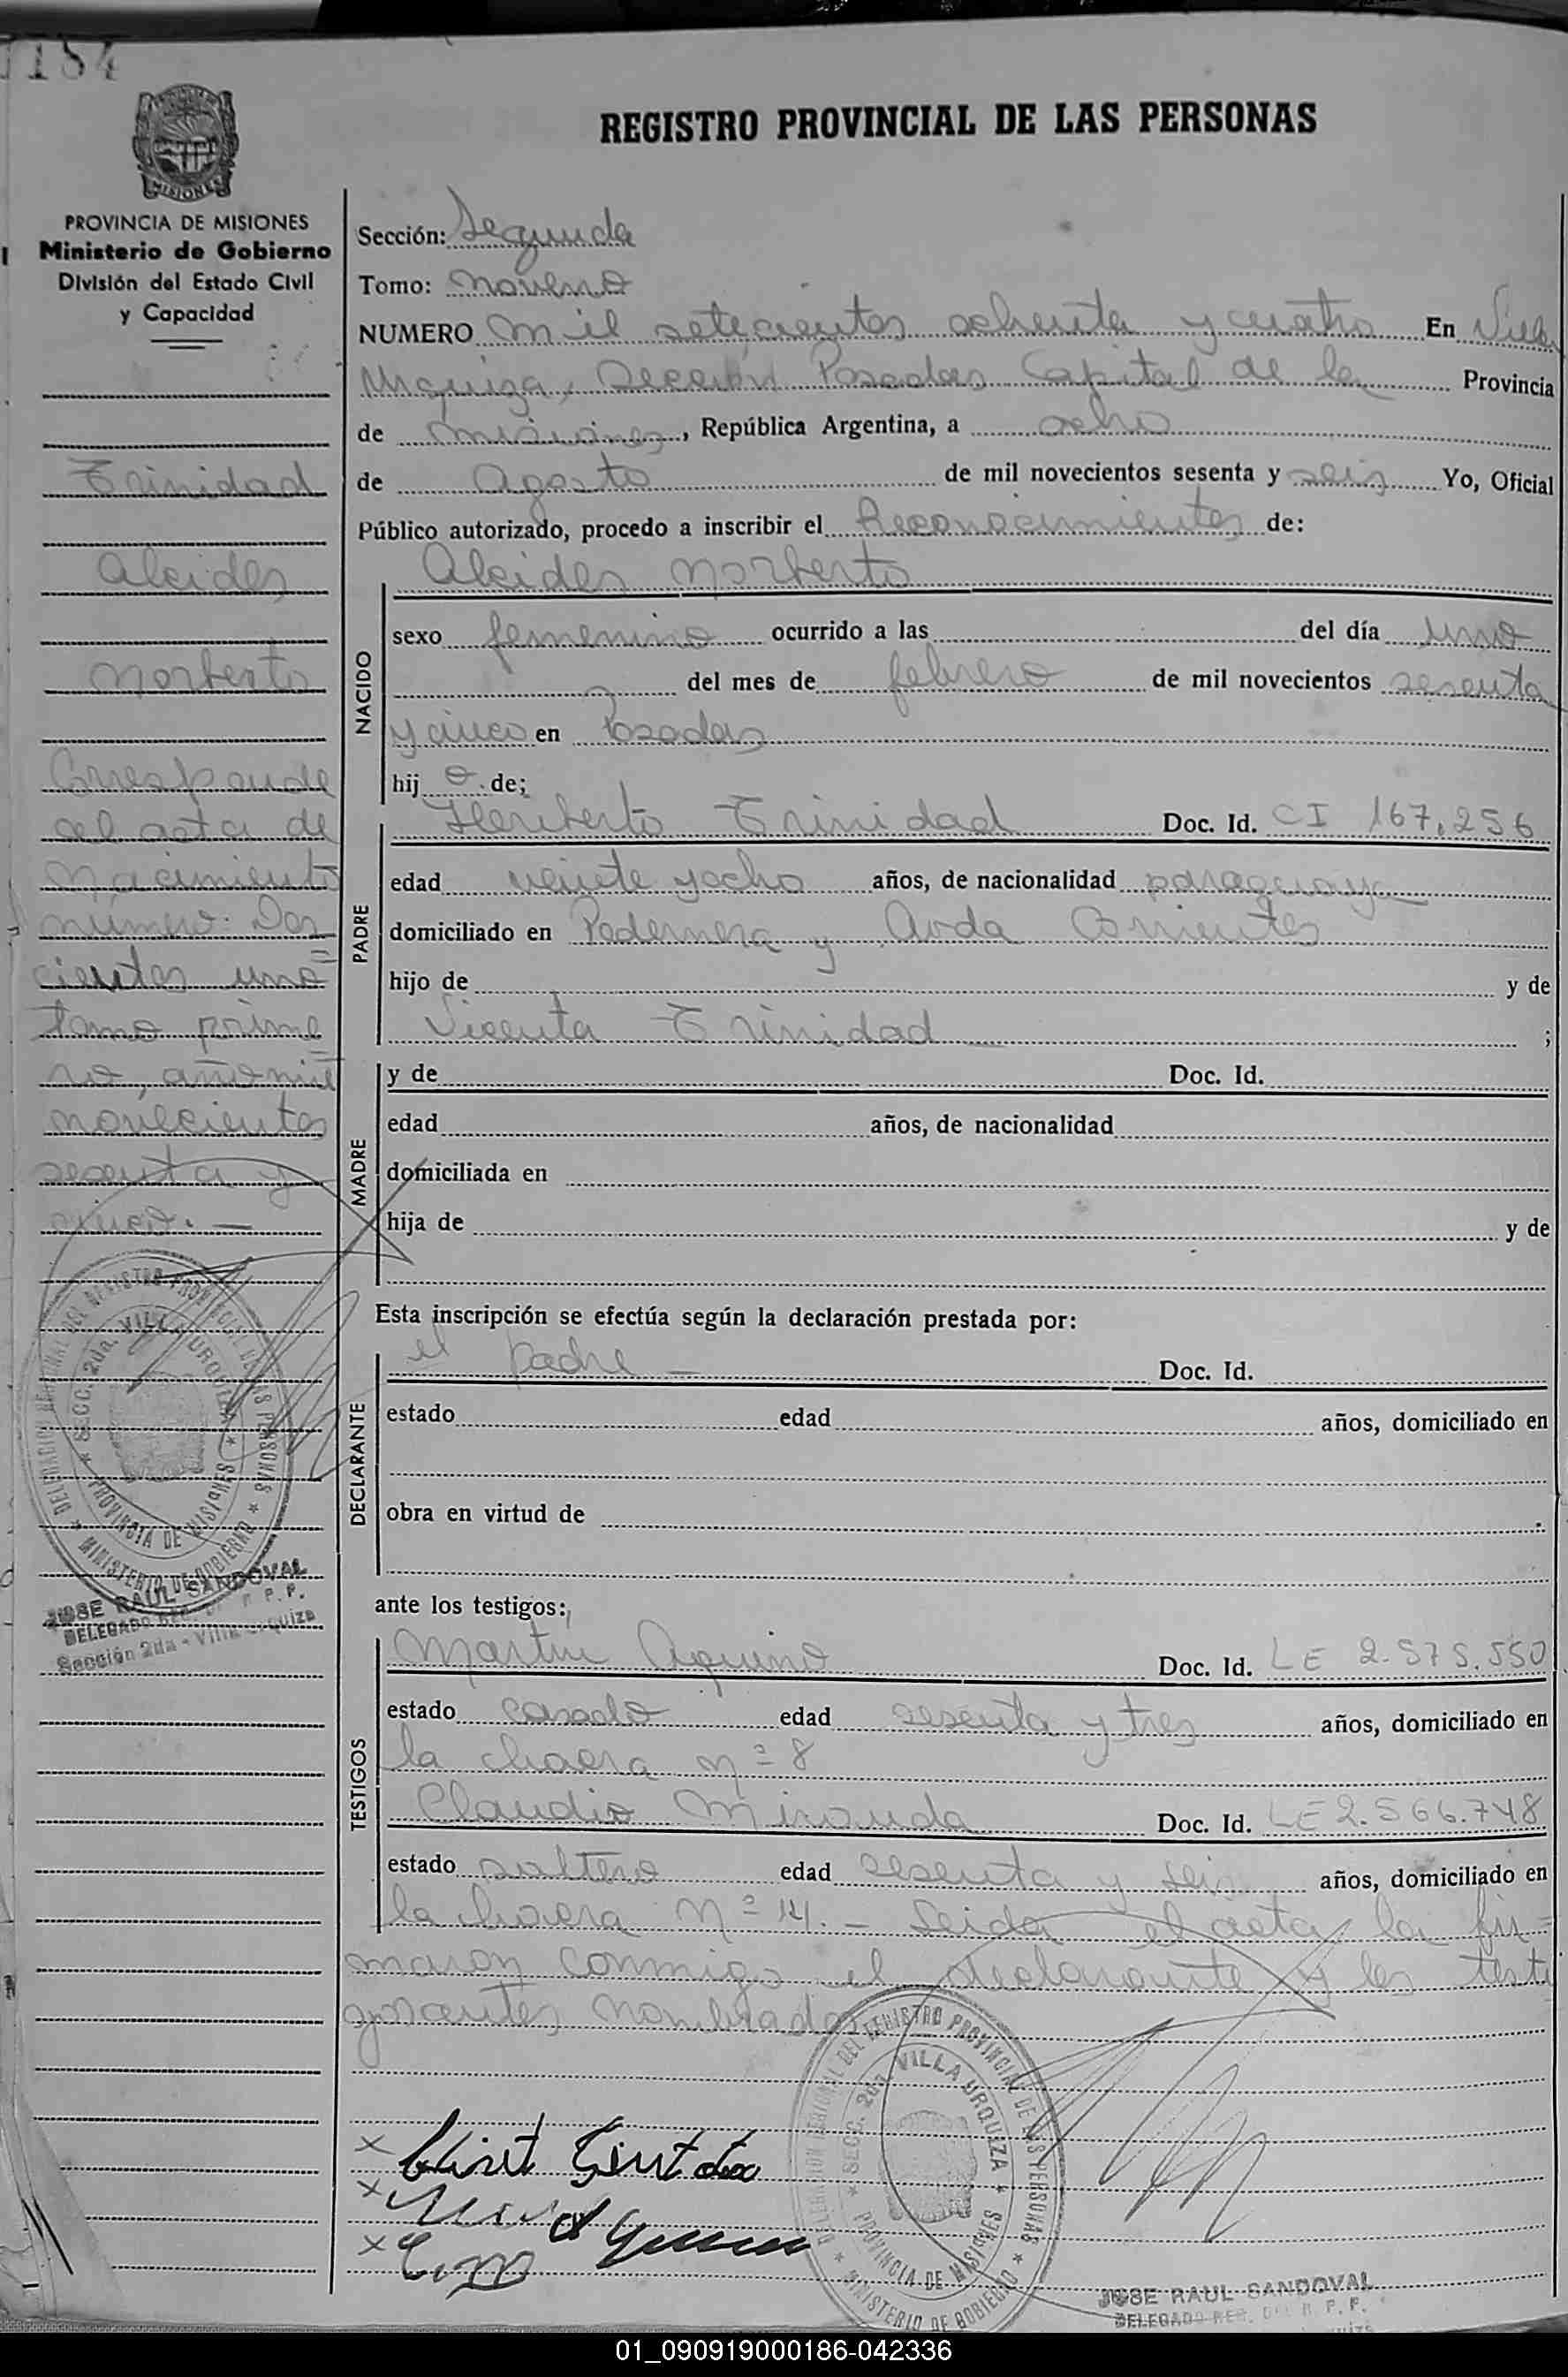 1184
MISIONES
PROVINCIA DE MISIONES
Ministerio de Gobierno
División del Estado Civil
y Capacidad
Trinidad
Alcides
Norberto
Corresponde
al acta de
Nacimiento
número: Dos
cientos uno=
tomo prime
ro, año mil
novecientos
sesenta y
cinco.-
DELEGACION REGIONAL DEL REGISTRO PROVINCIAL DE LAS PERSONAS * MINISTERIO DE GOBIERNO *
SECC. 2da. VILLA URQUIZA * PROVINCIA DE MISIONES *
JOSE RAUL SANDOVAL
DELEGADO REG. DEL R. P. P.
Sección 2da - Villa Urquiza
REGISTRO PROVINCIAL DE LAS PERSONAS
Sección: Segunda
Tomo: Noveno
NUMERO Mil setecientos ochenta y cuatro En Villa
Urquiza, Sección Posadas Capital de la Provincia
de Misiones, República Argentina, a ocho
de Agosto de mil novecientos sesenta y seis Yo, Oficial
Público autorizado, procedo a inscribir el Reconocimientos de:
Alcides Norberto
NACIDO
sexo femenino ocurrido a las del día uno
del mes de febrero de mil novecientos sesenta
y cinco en Posadas
hij o de;
PADRE
Heriberto Trinidad Doc. Id. CI 167.256
edad veinte yocho años, de nacionalidad paraguaya
domiciliado en Pedernera y Avda Corrientes
hijo de y de
Vicenta Trinidad ;
MADRE
y de Doc. Id.
edad años, de nacionalidad
domiciliada en
hija de y de
Esta inscripción se efectúa según la declaración prestada por:
DECLARANTE
el padre - Doc. Id.
estado edad años, domiciliado en
obra en virtud de
ante los testigos:
TESTIGOS
Martin Aquino Doc. Id. LE 2.575.550
estado casado edad sesenta y tres años, domiciliado en
la chacra nº 8
Claudio Miranda Doc. Id. LE 2.566.748
estado soltero edad sesenta y seis años, domiciliado en
la chacra Nº 121.- Leida el acta la fir=
maron conmigo el declarante y los testi
gos antes nombrados
DELEGACION REGIONAL DEL REGISTRO PROVINCIAL DE LAS PERSONAS * MINISTERIO DE GOBIERNO *
SECC. 2da. VILLA URQUIZA * PROVINCIA DE MISIONES *
JOSE RAUL SANDOVAL
DELEGADO REG. DEL R. P. P.
01_090919000186-042336